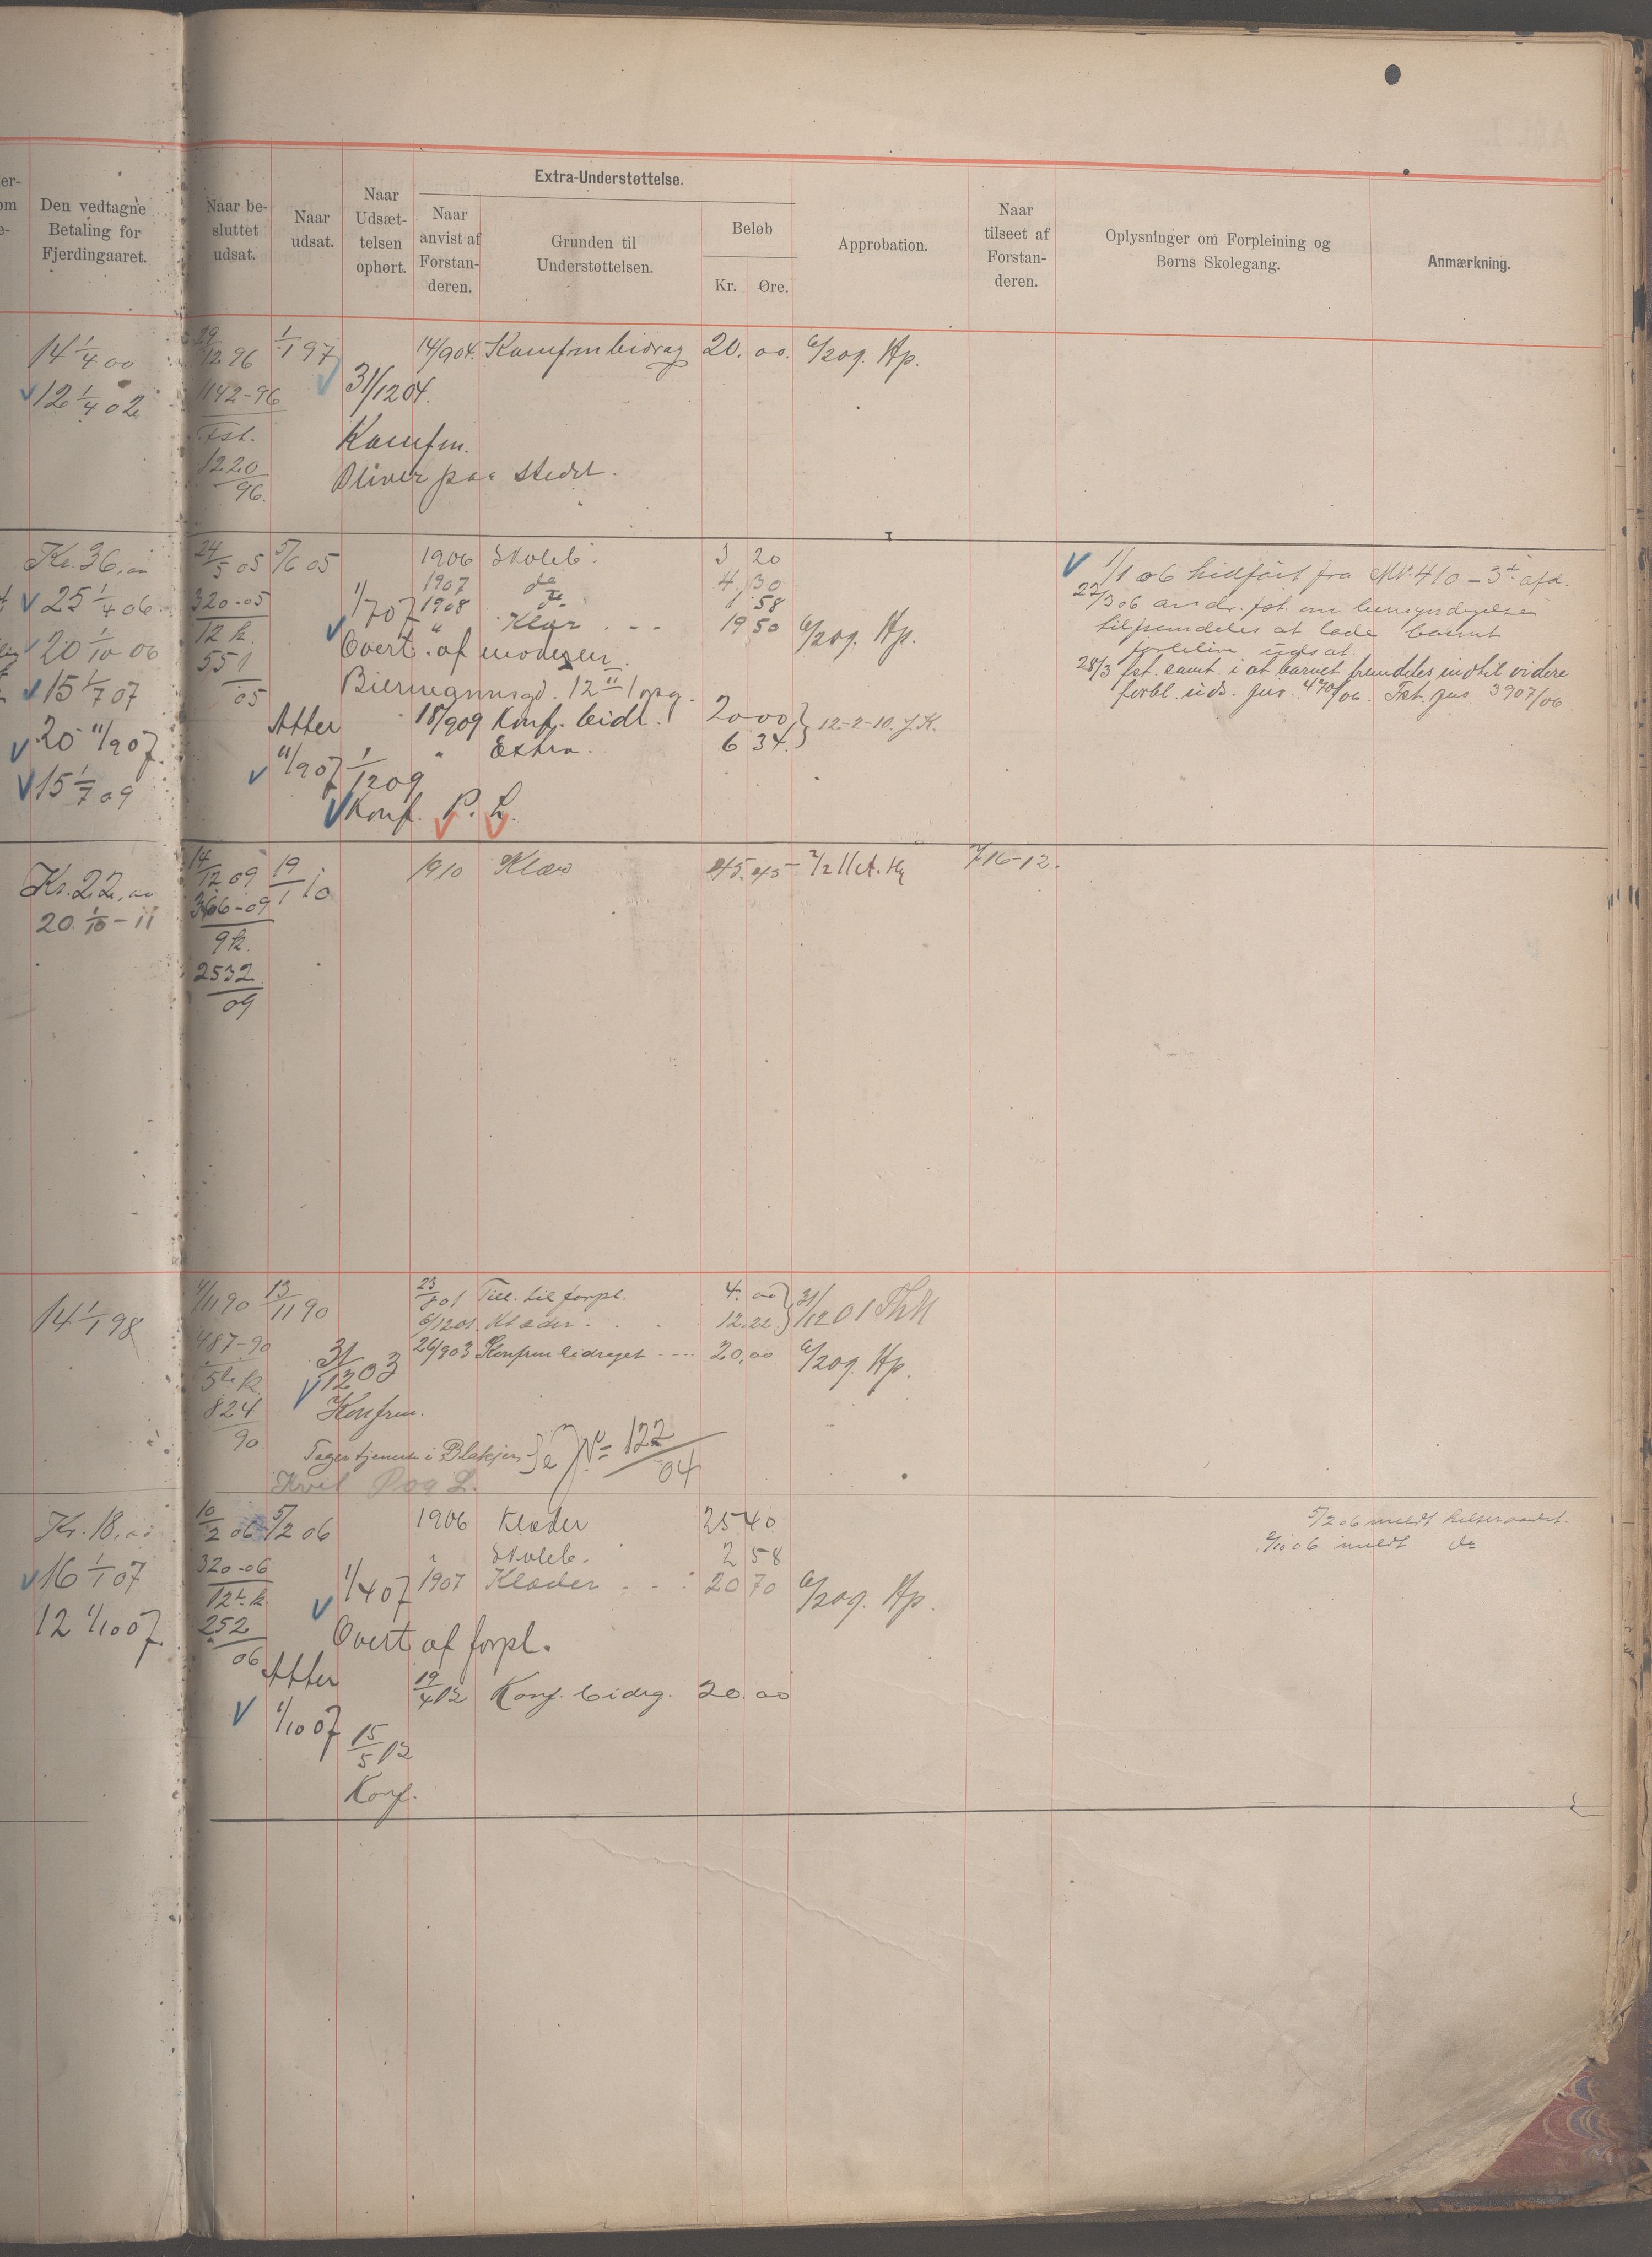 Den vedtagne
Betaling for
Fjerdingaaret.
Naar be-
sluttet
udsat.
Naar
udsat.
Naar
Udsæt-
telsen
ophørt.
Extra-Understøttelse.
Naar
anvist af
Forstan-
deren.
Grunden til
Understøttelsen.
Beløb
Kr. Øre.
Approbation.
Naar
tilseet af
Forstan-
deren.
Oplysninger om Forpleining og
Børns Skolegang.
Anmærkning.
14 1/4 00
12 1/4 02
29/12 96
1142-96
Fst.
1220/96.
1/1 97
31/12 04.
Konfm.
Bliver paa stedet.
14/9 04. Konfmbidrag 20. 00. 6/2 09. Hp.
Kr. 36,00
25 1/4 06
20 1/10 06
15 1/7 07
20 11/9 07.
15 1/7 09
24/5 05 5/6 05
320-05
12 k.
551/05
1/7 07
Overt. af moderen.
Biermannsgd. 12 II 1 opg.
Atter
11/9 07 1/12 09
Konf. P. L.
1906 Skoleb. 3 20
1907 do 4 30
1908 do 1 58
" Klær 19 50 6/2 09. Hp.
18/9 09 Konf. bidr. 20 00
" Extra. 6 34. 12-2-10. J.K.
1/1 06 hidført fra Nr. 410 - 3die afd.
22/3 06
tilfremdeles at lade barnet
forblive udsat.
28/3 fst. samt. i at barnet fremdeles indtil videre
forbl. uds. jns. 470/06. Fst. jns. 3907/06.
Kr. 22,00
20. 1/10 - 11
14/12 09
366-09
9 k.
2532/09
19/1 10
1910 Klær 45. 45 7/16-12.
14 1/1 98
4/11 90 13/11 90
487-90
5te k.
824/90
31/12 03
Konfrm.
Tager tjeneste i Blakjer. Se No 122/04
Kvit P og L.
23/8 01 Till. til forpl. 4. 00
6/12 01. Klæder. 12.22. 31/12 01
26/9 03 Konfrmbidraget 20,00 6/2 09. Hp.
Kr. 18,00
16 1/1 07
12 1/10 07.
10/2 06 5/2 06
320-06
12te k.
252/06
1/4 07
Overt af forpl.
Atter
1/10 07
15/5 12
Konf.
1906 Klæder 25 40
" Skoleb. 2 58
1907 Klæder 20 70 6/2 09. Hp.
19/4 12 Konf. bidrg. 20. 00
5/2 06 meldt helseraadet.
2/10 06 meldt do